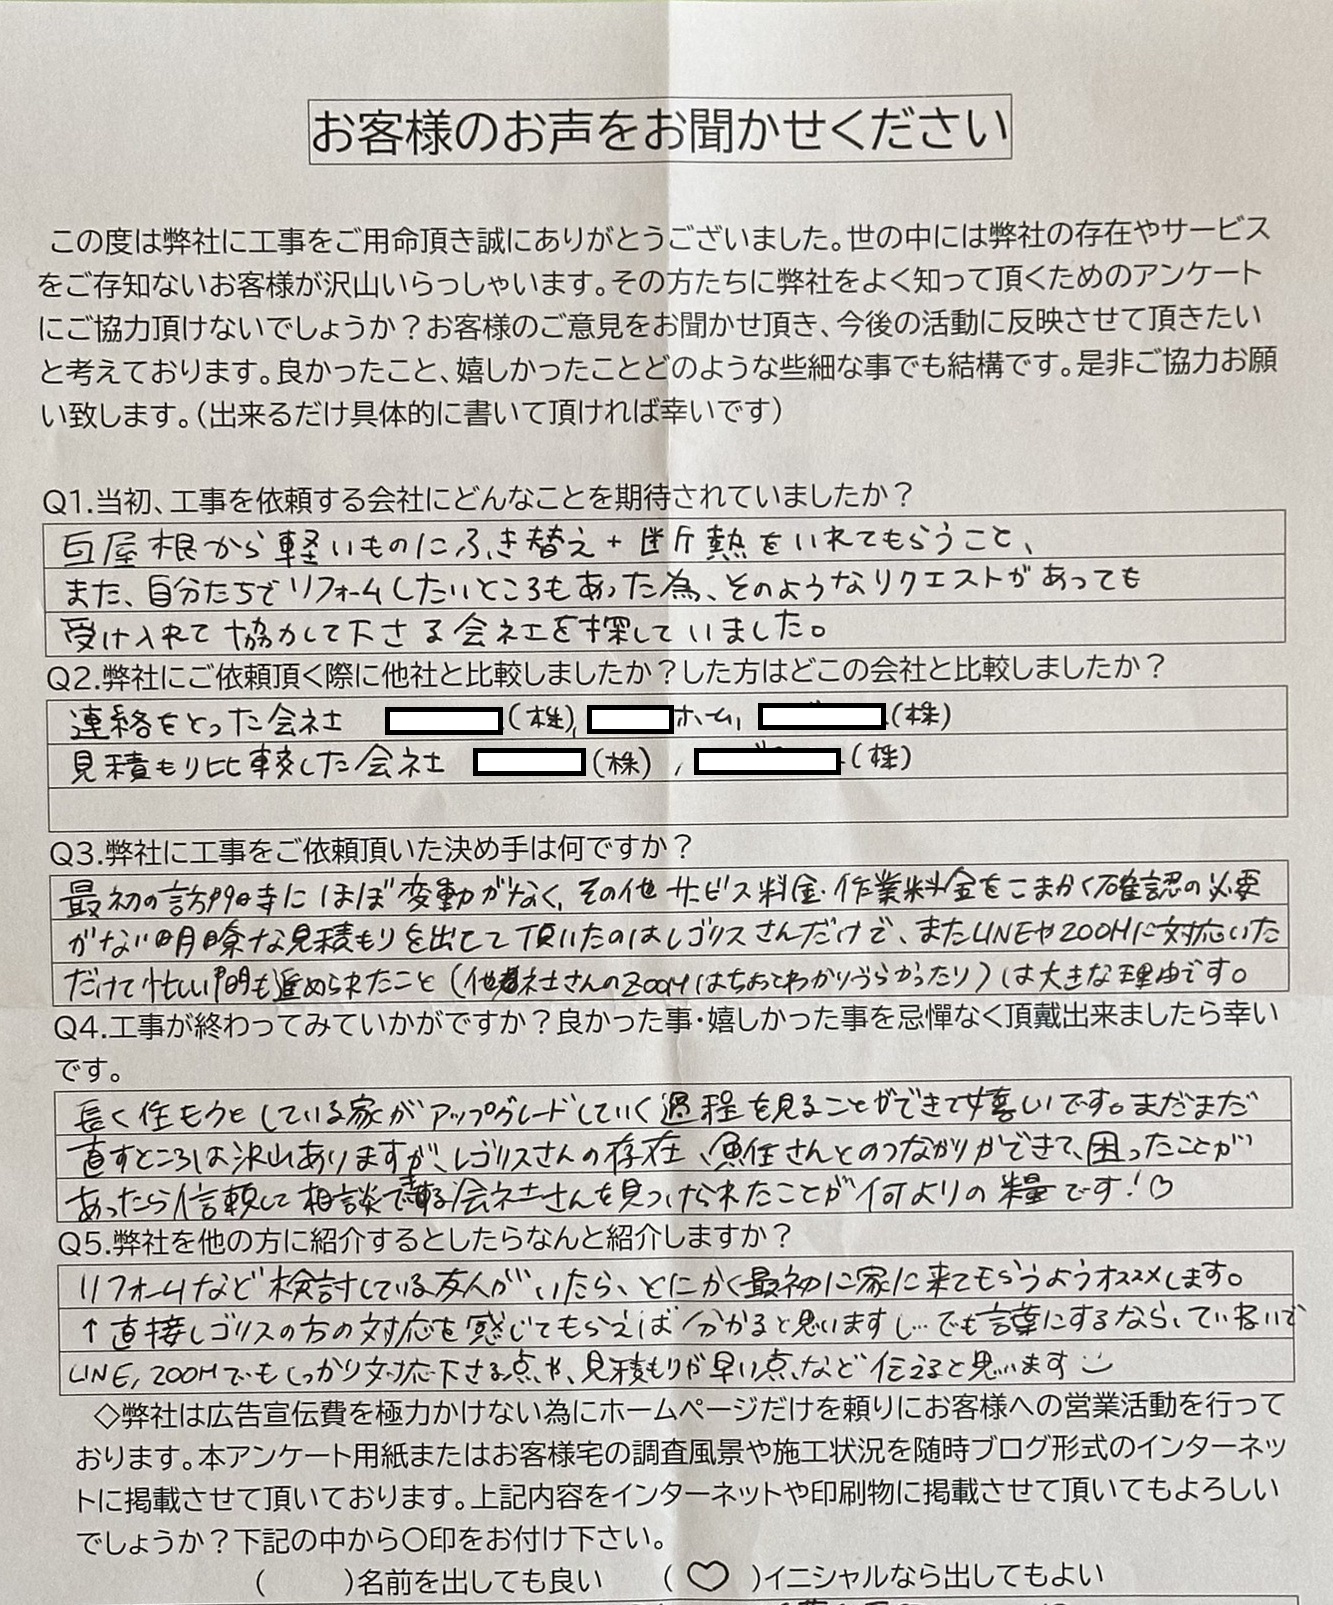 お客様のお声をお聞かせください
この度は弊社に工事をご用命頂き誠にありがとうございました。世の中には弊社の存在やサービス
をご存知ないお客様が沢山いらっしゃいます。その方たちに弊社をよく知って頂くためのアンケート
にご協力頂けないでしょうか？お客様のご意見をお聞かせ頂き、今後の活動に反映させて頂きたい
と考えております。良かったこと、嬉しかったことどのような些細な事でも結構です。是非ご協力お願
い致します。（出来るだけ具体的に書いて頂ければ幸いです）
Q1.当初、工事を依頼する会社にどんなことを期待されていましたか？
瓦屋根から軽いものにふき替え＋断熱をいれてもらうこと、
また、自分たちでリフォームしたいところもあった為、そのようなリクエストがあっても
受け入れて協力して下さる会社を探していました。
Q2.弊社にご依頼頂く際に他社と比較しましたか？した方はどこの会社と比較しましたか？
連絡をとった会社 （株）, ホーム, （株）
見積もり比較した会社 （株）, （株）
Q3.弊社に工事をご依頼頂いた決め手は何ですか？
最初の訪問時にほぼ変動がなく、その他サービス料金・作業料金をこまかく確認の必要
がない明瞭な見積もりを出して頂いたのはレゴリスさんだけで、またLINEやZOOMに対応いた
だけて忙しい間も進められたこと（他社さんのZOOMはちょっとわかりづらかったり）は大きな理由です。
Q4.工事が終わってみていかがですか？良かった事・嬉しかった事を忌憚なく頂戴出来ましたら幸い
です。
長く住もうとしている家がアップグレードしていく過程を見ることができて嬉しいです。まだまだ
直すところは沢山ありますが、レゴリスさんの存在、兼任さんとのつながりができて、困ったことが
あったら信頼して相談できる会社さんを見つけられたことが何よりの糧です！♡
Q5.弊社を他の方に紹介するとしたらなんと紹介しますか？
リフォームなど検討している友人がいたら、とにかく最初に家に来てもらうようオススメします。
↑直接レゴリスの方の対応を感じてもらえば分かると思いますし…でも言葉にするなら、ていねいで
LINE, ZOOMでもしっかり対応下さる点や、見積もりが早い点など伝えると思います
◇弊社は広告宣伝費を極力かけない為にホームページだけを頼りにお客様への営業活動を行って
おります。本アンケート用紙またはお客様宅の調査風景や施工状況を随時ブログ形式のインターネッ
トに掲載させて頂いております。上記内容をインターネットや印刷物に掲載させて頂いてもよろしい
でしょうか？下記の中から〇印をお付け下さい。
（　　）名前を出しても良い　（ ♡ ）イニシャルなら出してもよい